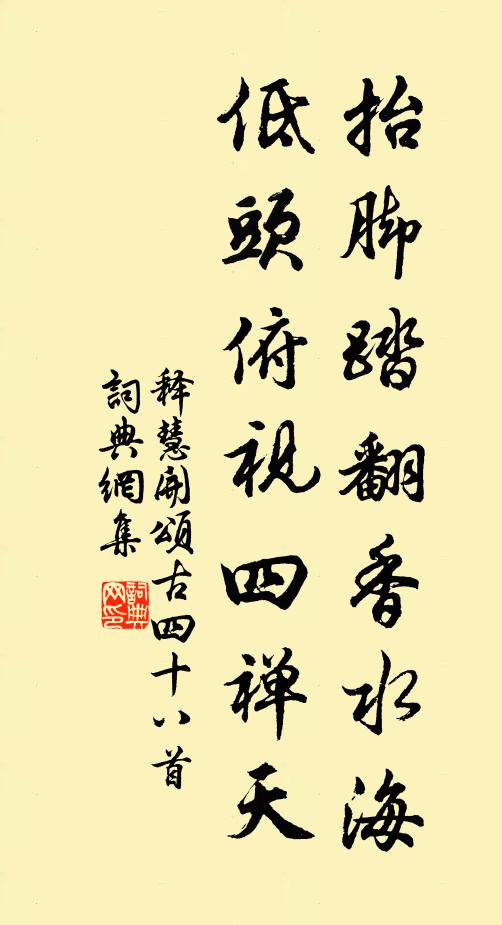 抬脚踏翻香水海
低頭俯視四禅天
释慧開頌古四十八首
詞典網集
詞典网印